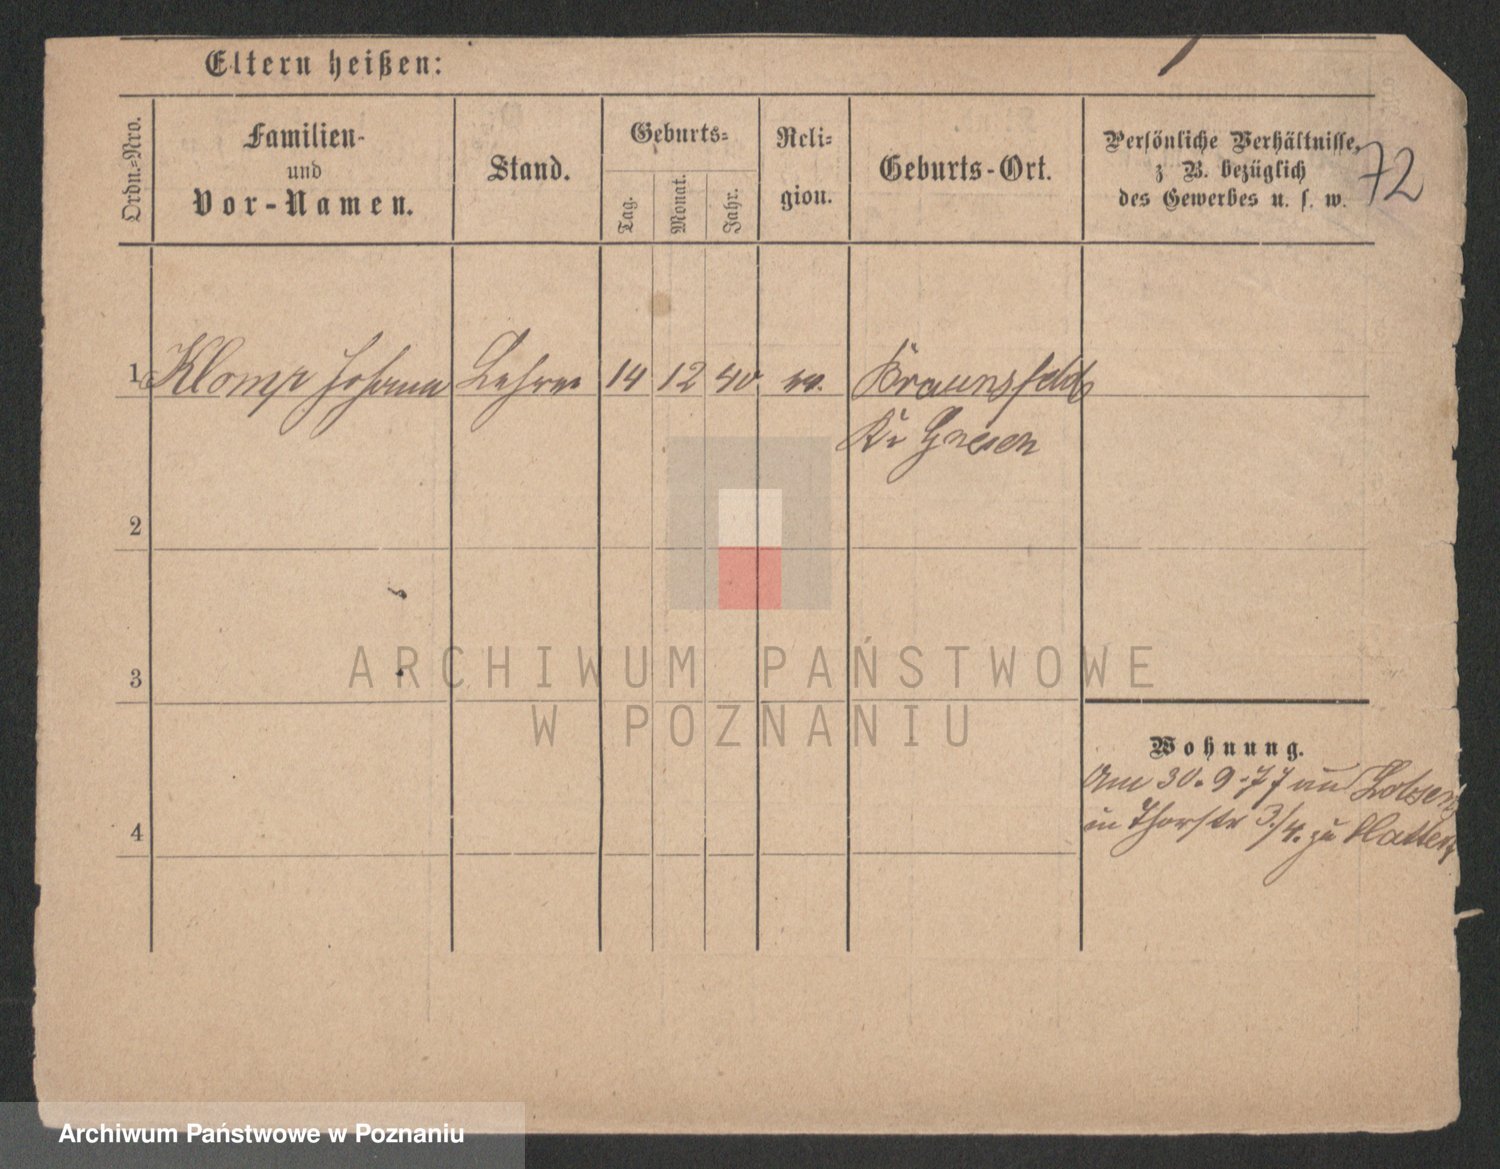 Eltern heißen:
Ordn.-Nro.
Familien-
und
Vor-Namen.
Stand.
Geburts-
Tag.
Monat.
Jahr.
Reli-
gion.
Geburts-Ort.
Persönliche Verhältnisse,
z B. bezüglich
des Gewerbes u. s. w.
72
1 Klomp Johann Lehrer 14 12 50 Braunsfeld
Kr Gnesen
2
3
ARCHIWUM PAŃSTWOWE
W POZNANIU
Wohnung.
Am 30.9.77 Lobsens
in Thorstr 3/4. zu
4
Archiwum Państwowe w Poznaniu